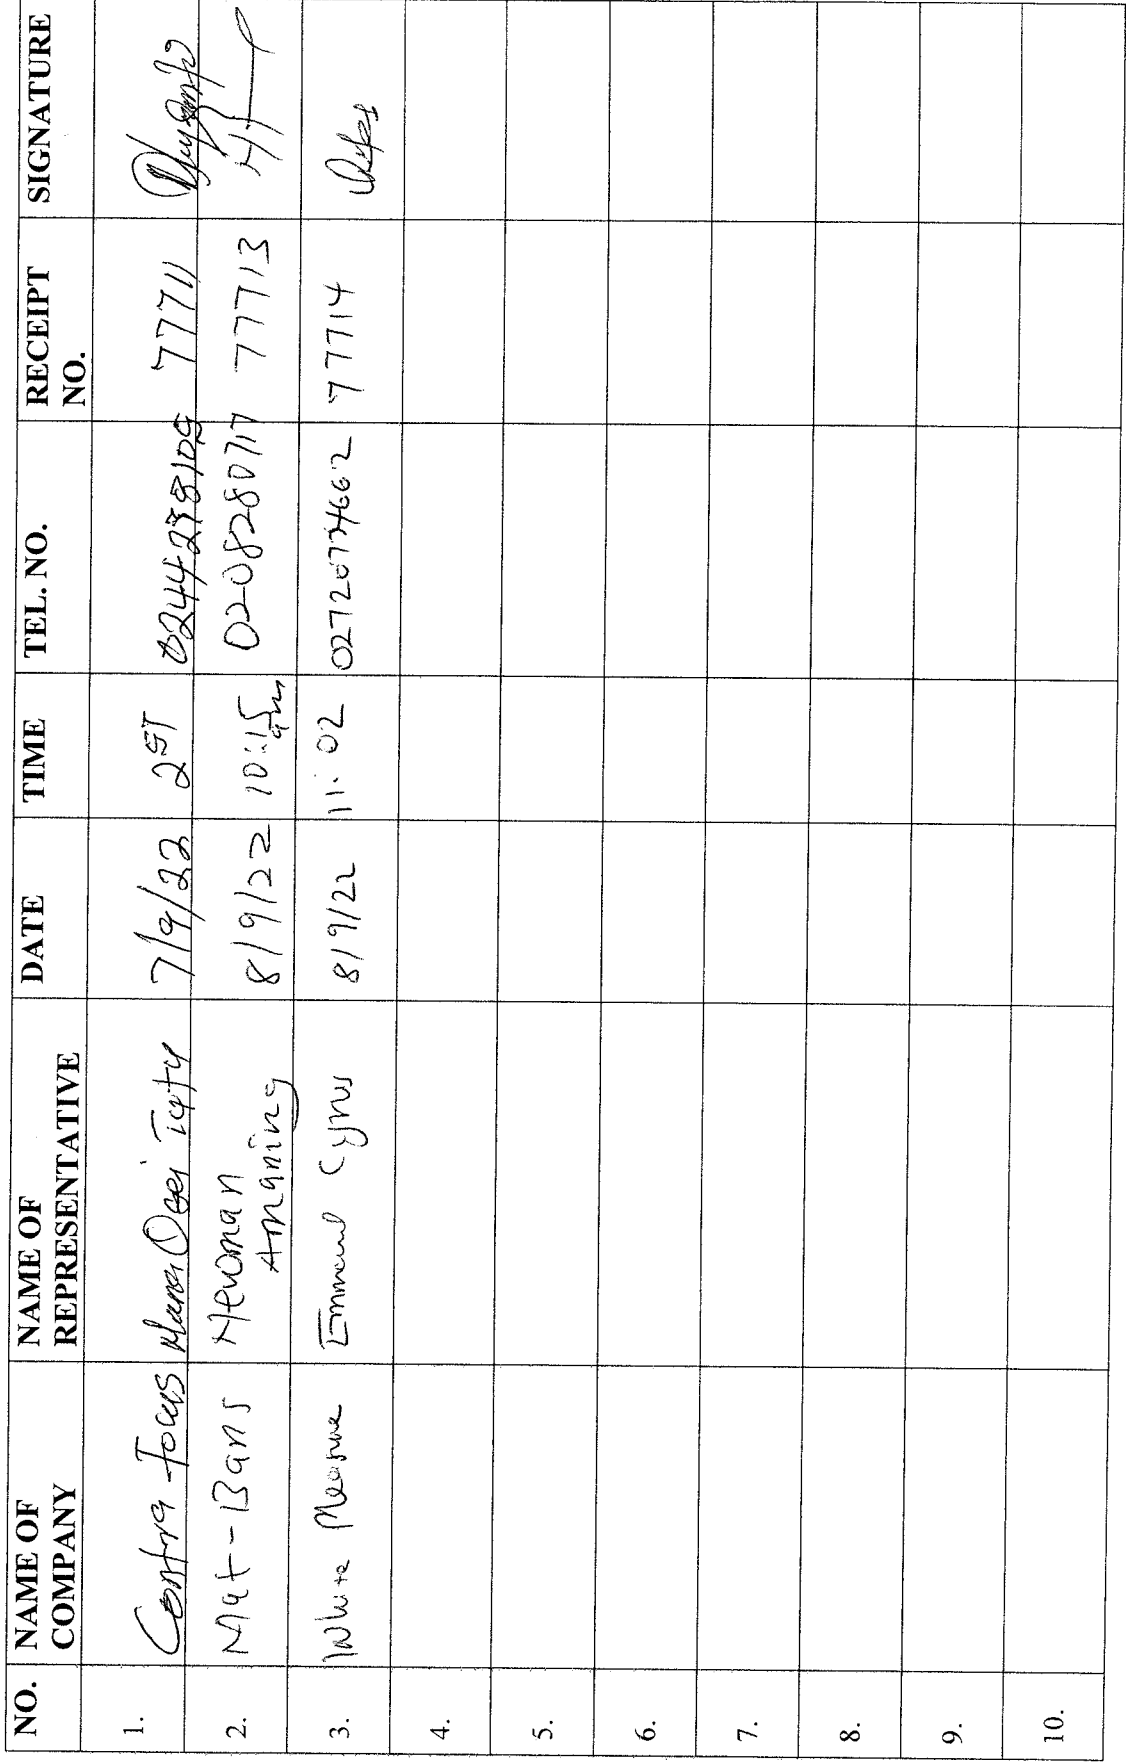 NO. NAME OF COMPANY NAME OF REPRESENTATIVE DATE TIME TEL. NO. RECEIPT NO. SIGNATURE
1. Contra Focus Osei Tutu 7/9/22 77711
2. Mat-Bans Newman Amaning 8/9/22 10:15am 0208280717 77713
3. White Measure Emmanuel Cyrus 8/9/22 11:02 77714
4.
5.
6.
7.
8.
9.
10.